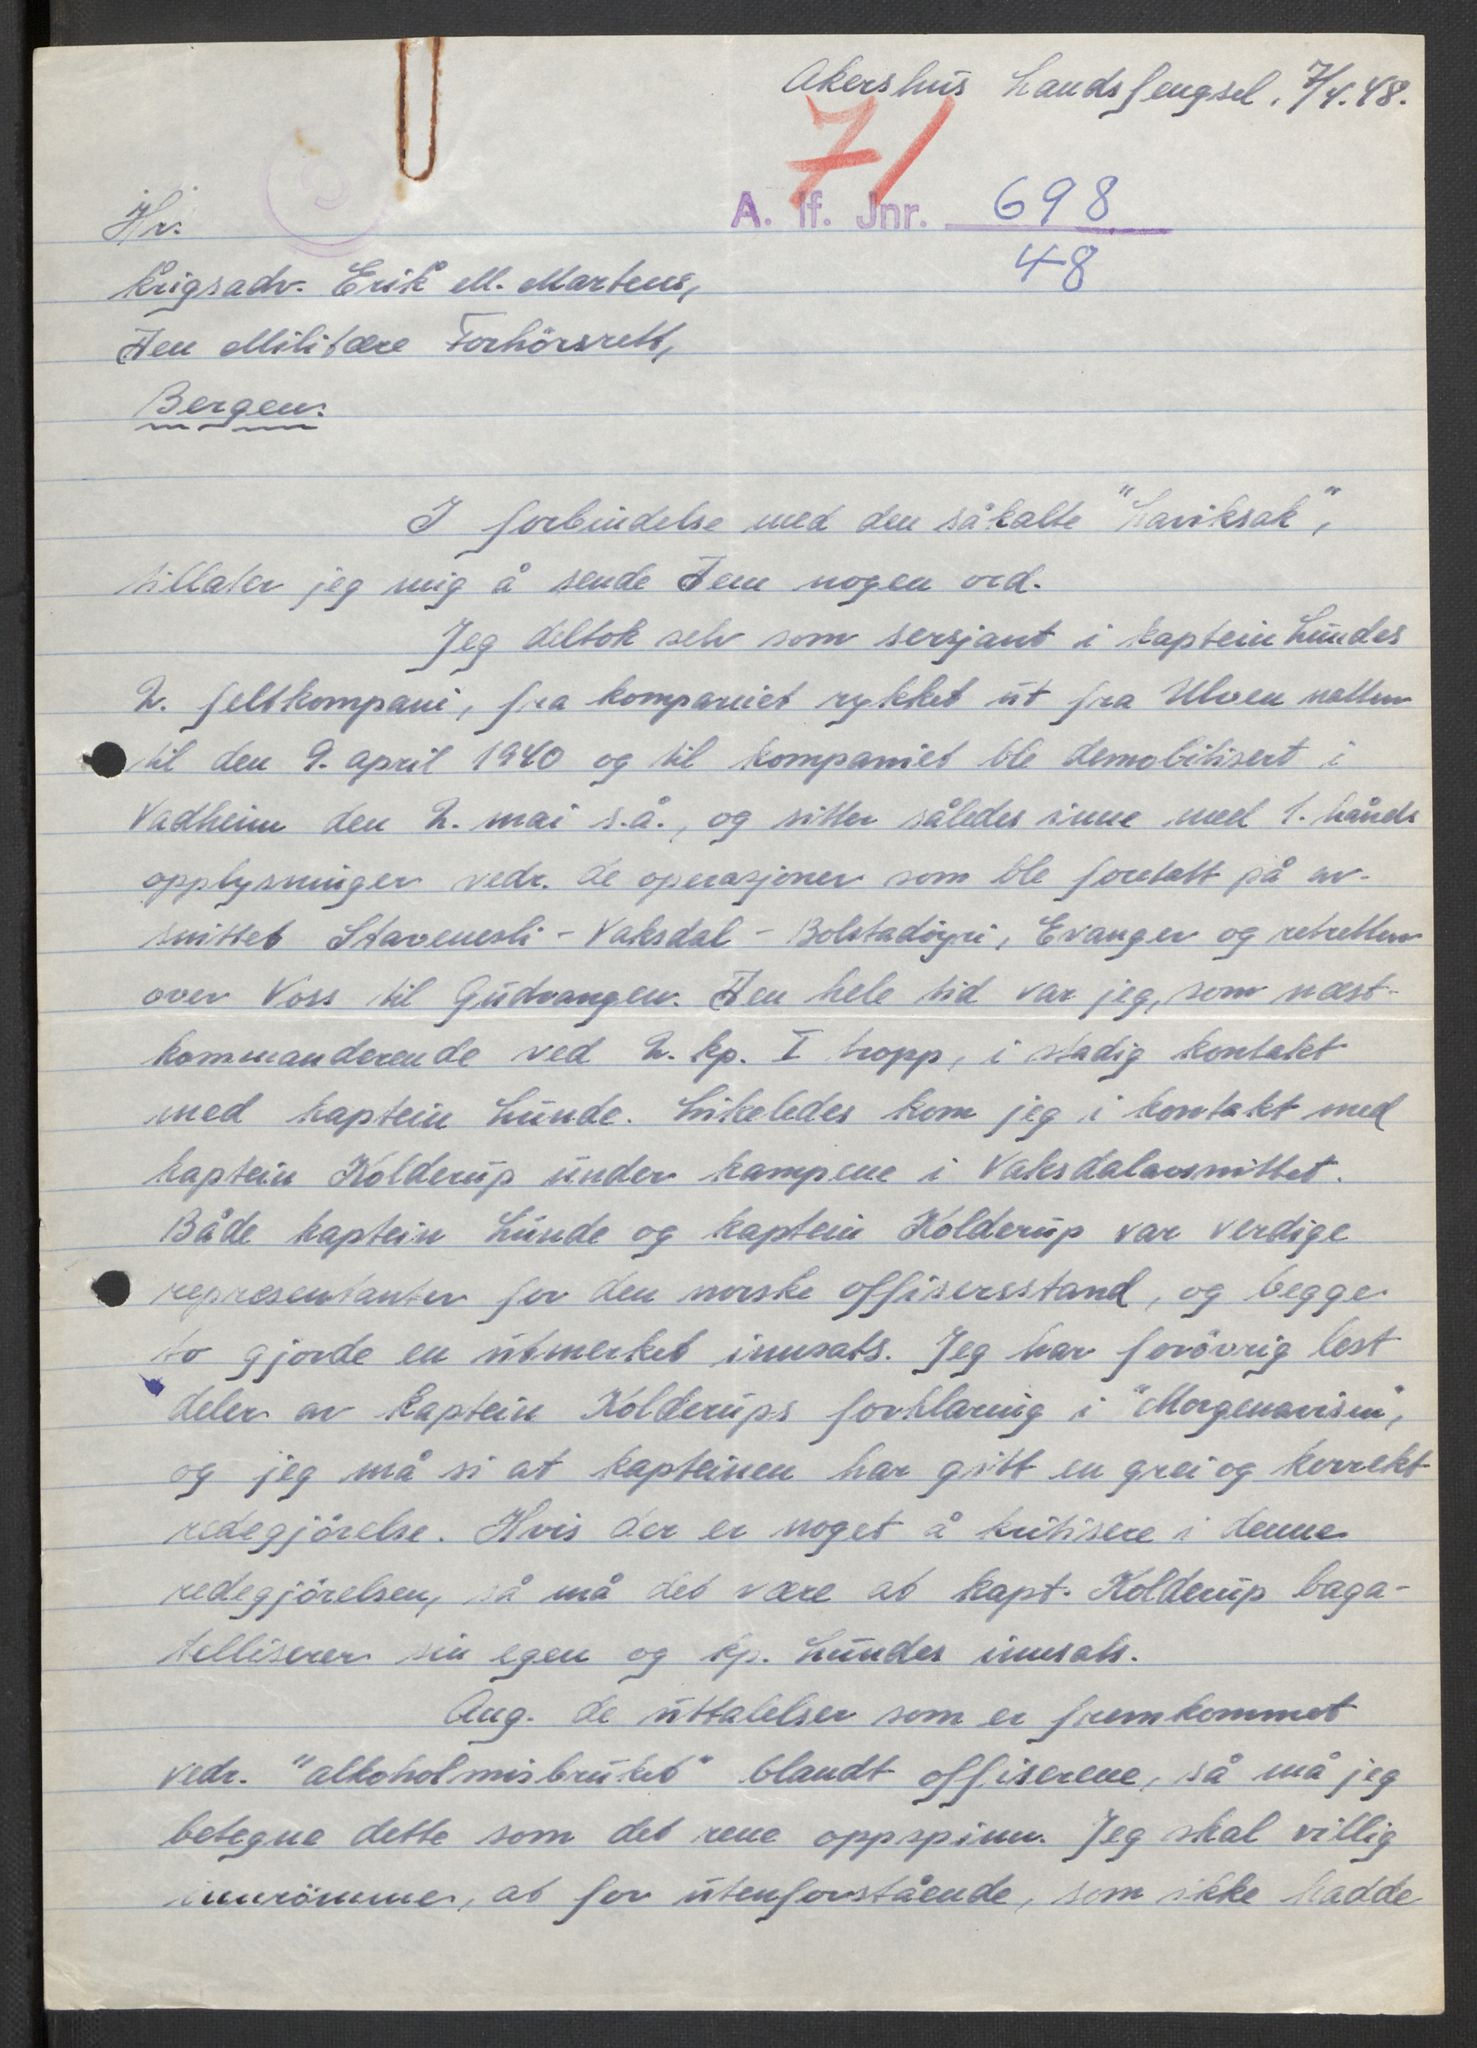 Akershus Landsfengsel, 7/4.48.
71
A. lf. Jnr. 698
48
Hr.
Krigsadv. Erik M. Martens,
Den Militære Forhörsrett,
Bergen.
I forbindelse med den såkalte "Larviksak",
tillater jeg mig å sende Dem nogen ord.
Jeg deltok selv som sersjant i kaptein Lundes
2. feltkompani, fra kompaniet rykket ut fra Ulven natten
til den 9. april 1940 og til kompaniet ble demobilisert i
Vadheim den 2. mai s.å., og sitter således inne med 1. hånds
opplysninger vedr. de operasjoner som ble foretatt på av-
snittet Stavenesli - Vaksdal - Bolstadöyri, Evanger og retretten
over Voss til Gudvangen. Den hele tid var jeg, som næst-
kommanderende ved 2. kp. I tropp, i stadig kontakt
med kaptein Lunde. Likeledes kom jeg i kontakt med
kaptein Kolderup under kampene i Vaksdalavsnittet.
Både kaptein Lunde og kaptein Kolderup var verdige
representanter for den norske offisersstand, og begge
to gjorde en utmerket innsats. Jeg har forövrig lest
deler av kaptein Kolderups forklaring i "Morgenavisen",
og jeg må si at kapteinen har gitt en grei og korrekt
redegjörelse. Hvis der er noget å kritisere i denne
redegjörelsen, så må det være at kapt. Kolderup baga-
telliserer sin egen og kp. Lundes innsats.
Ang. de uttalelser som er fremkommet
vedr. "alkoholmisbruket" blandt offiserene, så må jeg
betegne dette som det rene oppspinn. Jeg skal villig
innrömme, at for utenforstående, som ikke hadde